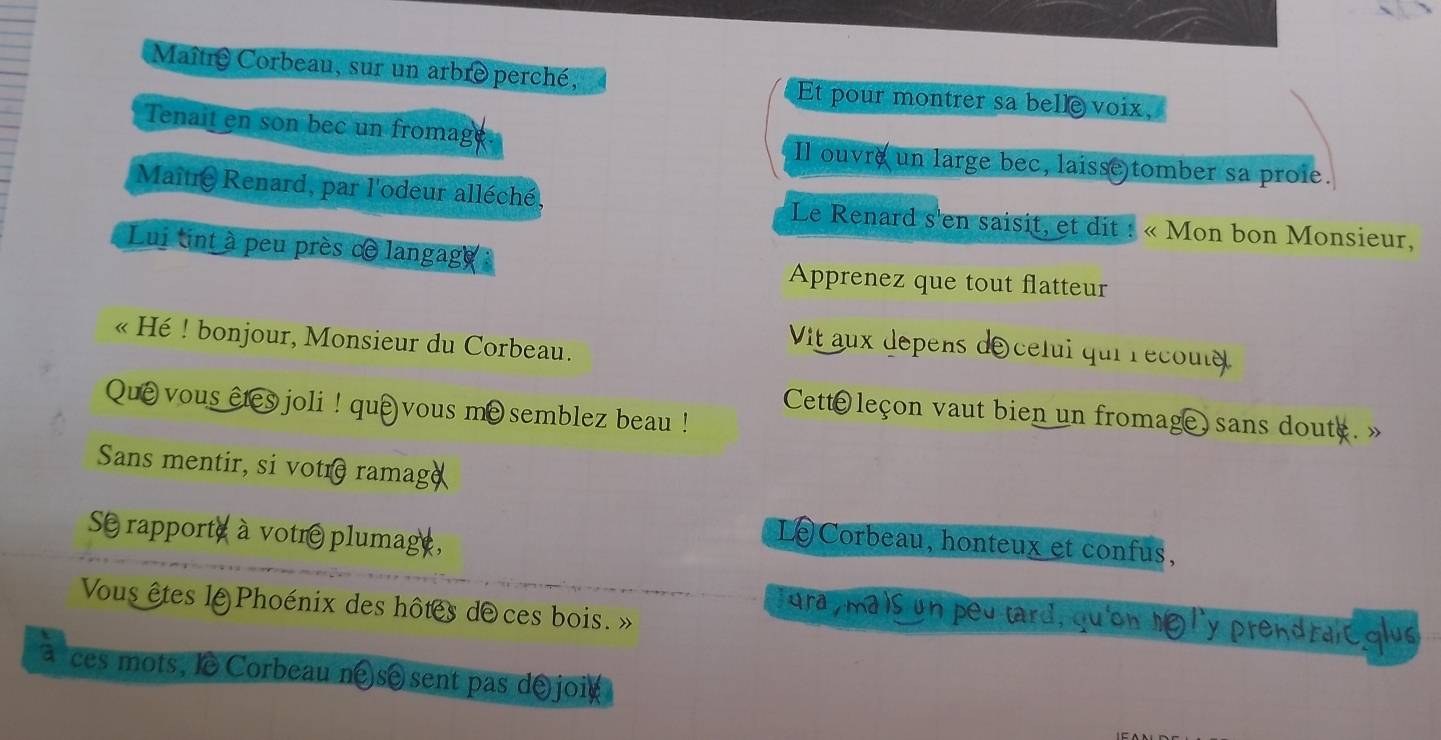 Maître Corbeau, sur un arbre perché,
Tenait en son bec un fromage.
Maître Renard, par l'odeur alléché,
Lui tint à peu près ce langage :
« Hé ! bonjour, Monsieur du Corbeau.
Que vous êtes joli ! que vous me semblez beau !
Sans mentir, si votre ramage
Se rapporte à votre plumage,
Vous êtes le Phoénix des hôtes de ces bois. »
à ces mots, le Corbeau ne se sent pas de joie
Et pour montrer sa belle voix,
Il ouvre un large bec, laisse tomber sa proie.
Le Renard s'en saisit, et dit : « Mon bon Monsieur,
Apprenez que tout flatteur
Vit aux depens de celui qui l'ecoute
Cette leçon vaut bien un fromage sans doute. »
Le Corbeau, honteux et confus,
Jura, mais un peu tard, qu'on ne l'y prendrait plus